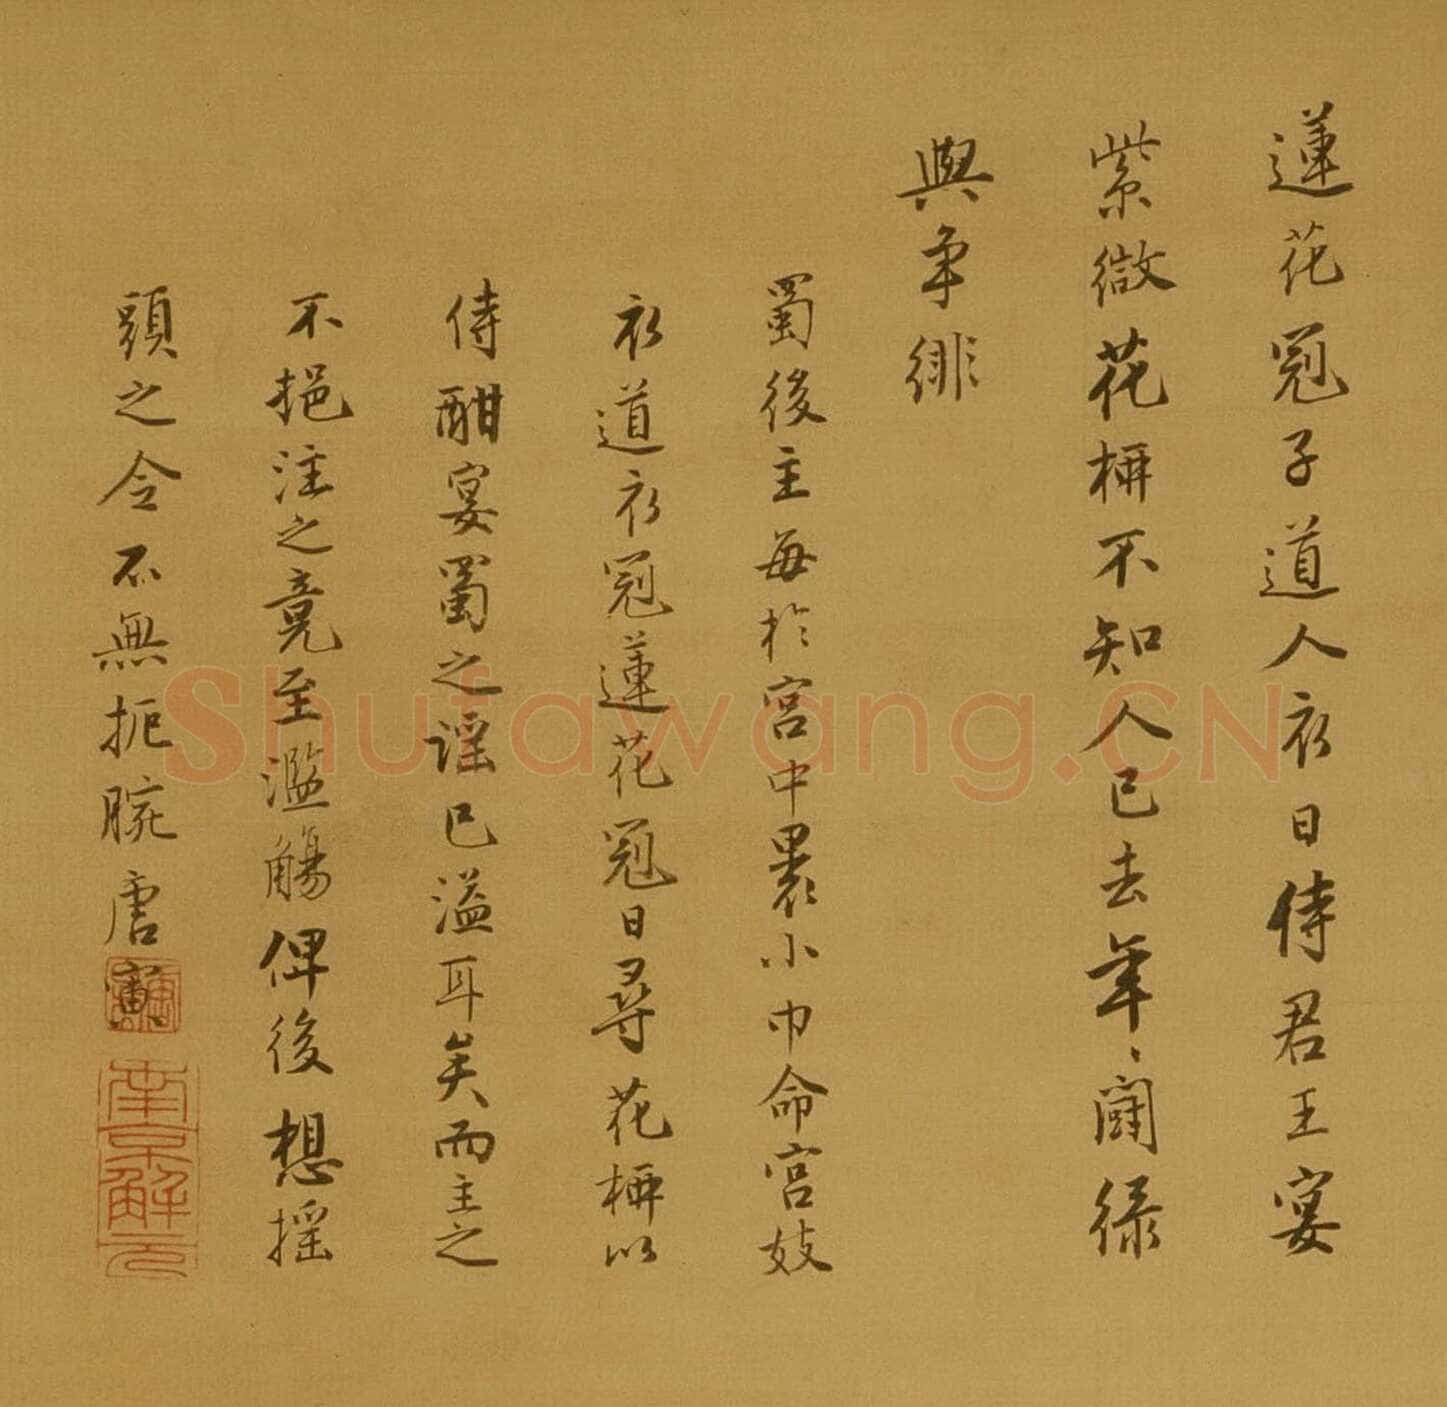 蓮花冠子道人衣日侍君王宴
紫微花柳不知人已去年、鬪綠
與爭緋
蜀後主每於宮中裹小巾命宮妓
衣道衣冠蓮花冠日尋花柳以
侍酣宴蜀之謠已溢耳矣而主之
不挹注之竟至濫觴俾後想搖
頭之令不無扼腕唐寅
南京解元
Shufawang.CN